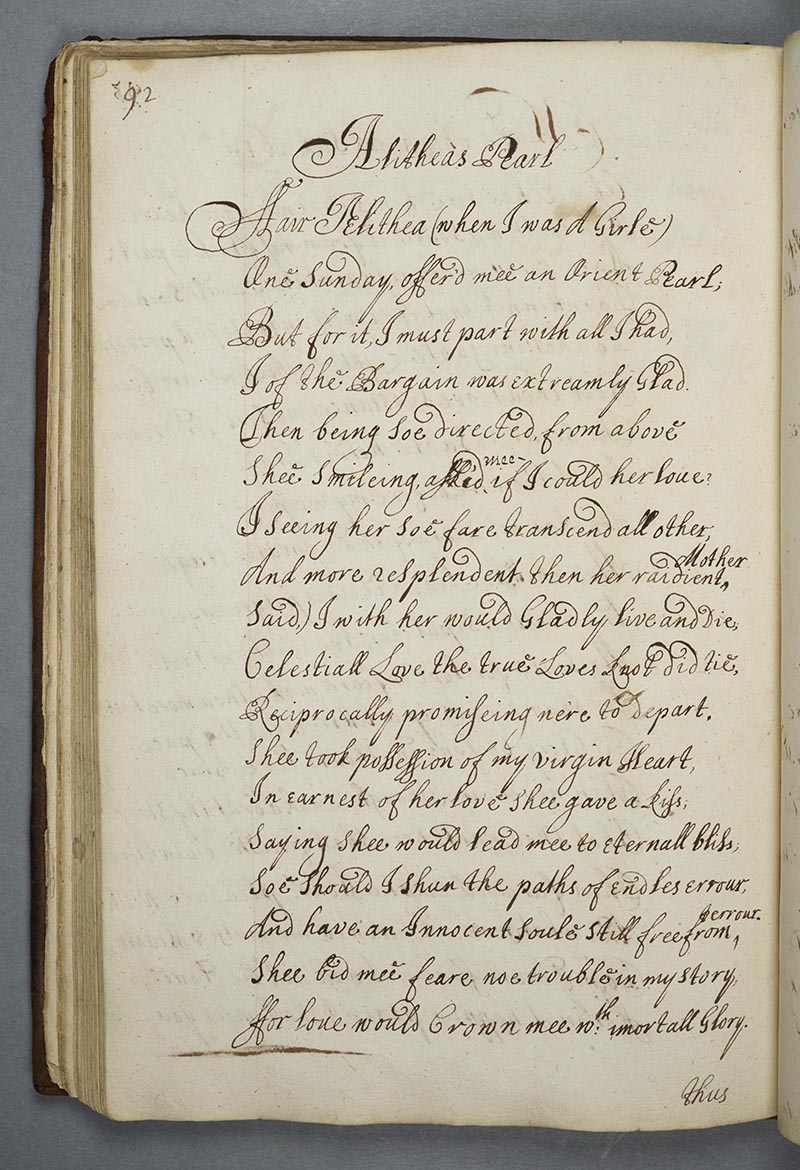 92
Alitheas Pearl
Ffair Alithea (when I was A Girle)
One Sunday, offer'd mee an Orient Pearl;
But for it, I must part with all I had,
I of the Bargain was extreamly Glad.
Then being Soe directed, from above
Shee Smileing, asked mee if I could her love?
I Seeing her Soe fare transcend all other,
And more resplendent, then her raidient, Mother
Said,) I with her would Gladly live and Die;
Celestiall Love the true Loves knot did tie,
Reciprocally promiseing nere to depart.
Shee took possession of my virgin Heart,
In earnest of her love Shee gave a kiss;
Saying Shee would lead mee to eternall bliss;
Soe Should I Shun the paths of Endles errour,
And have an Innocent Soule Still free from, terrour.
Shee bid mee feare noe trouble in my Story,
Ffor love would Crown mee wth imortall Glory.
thus